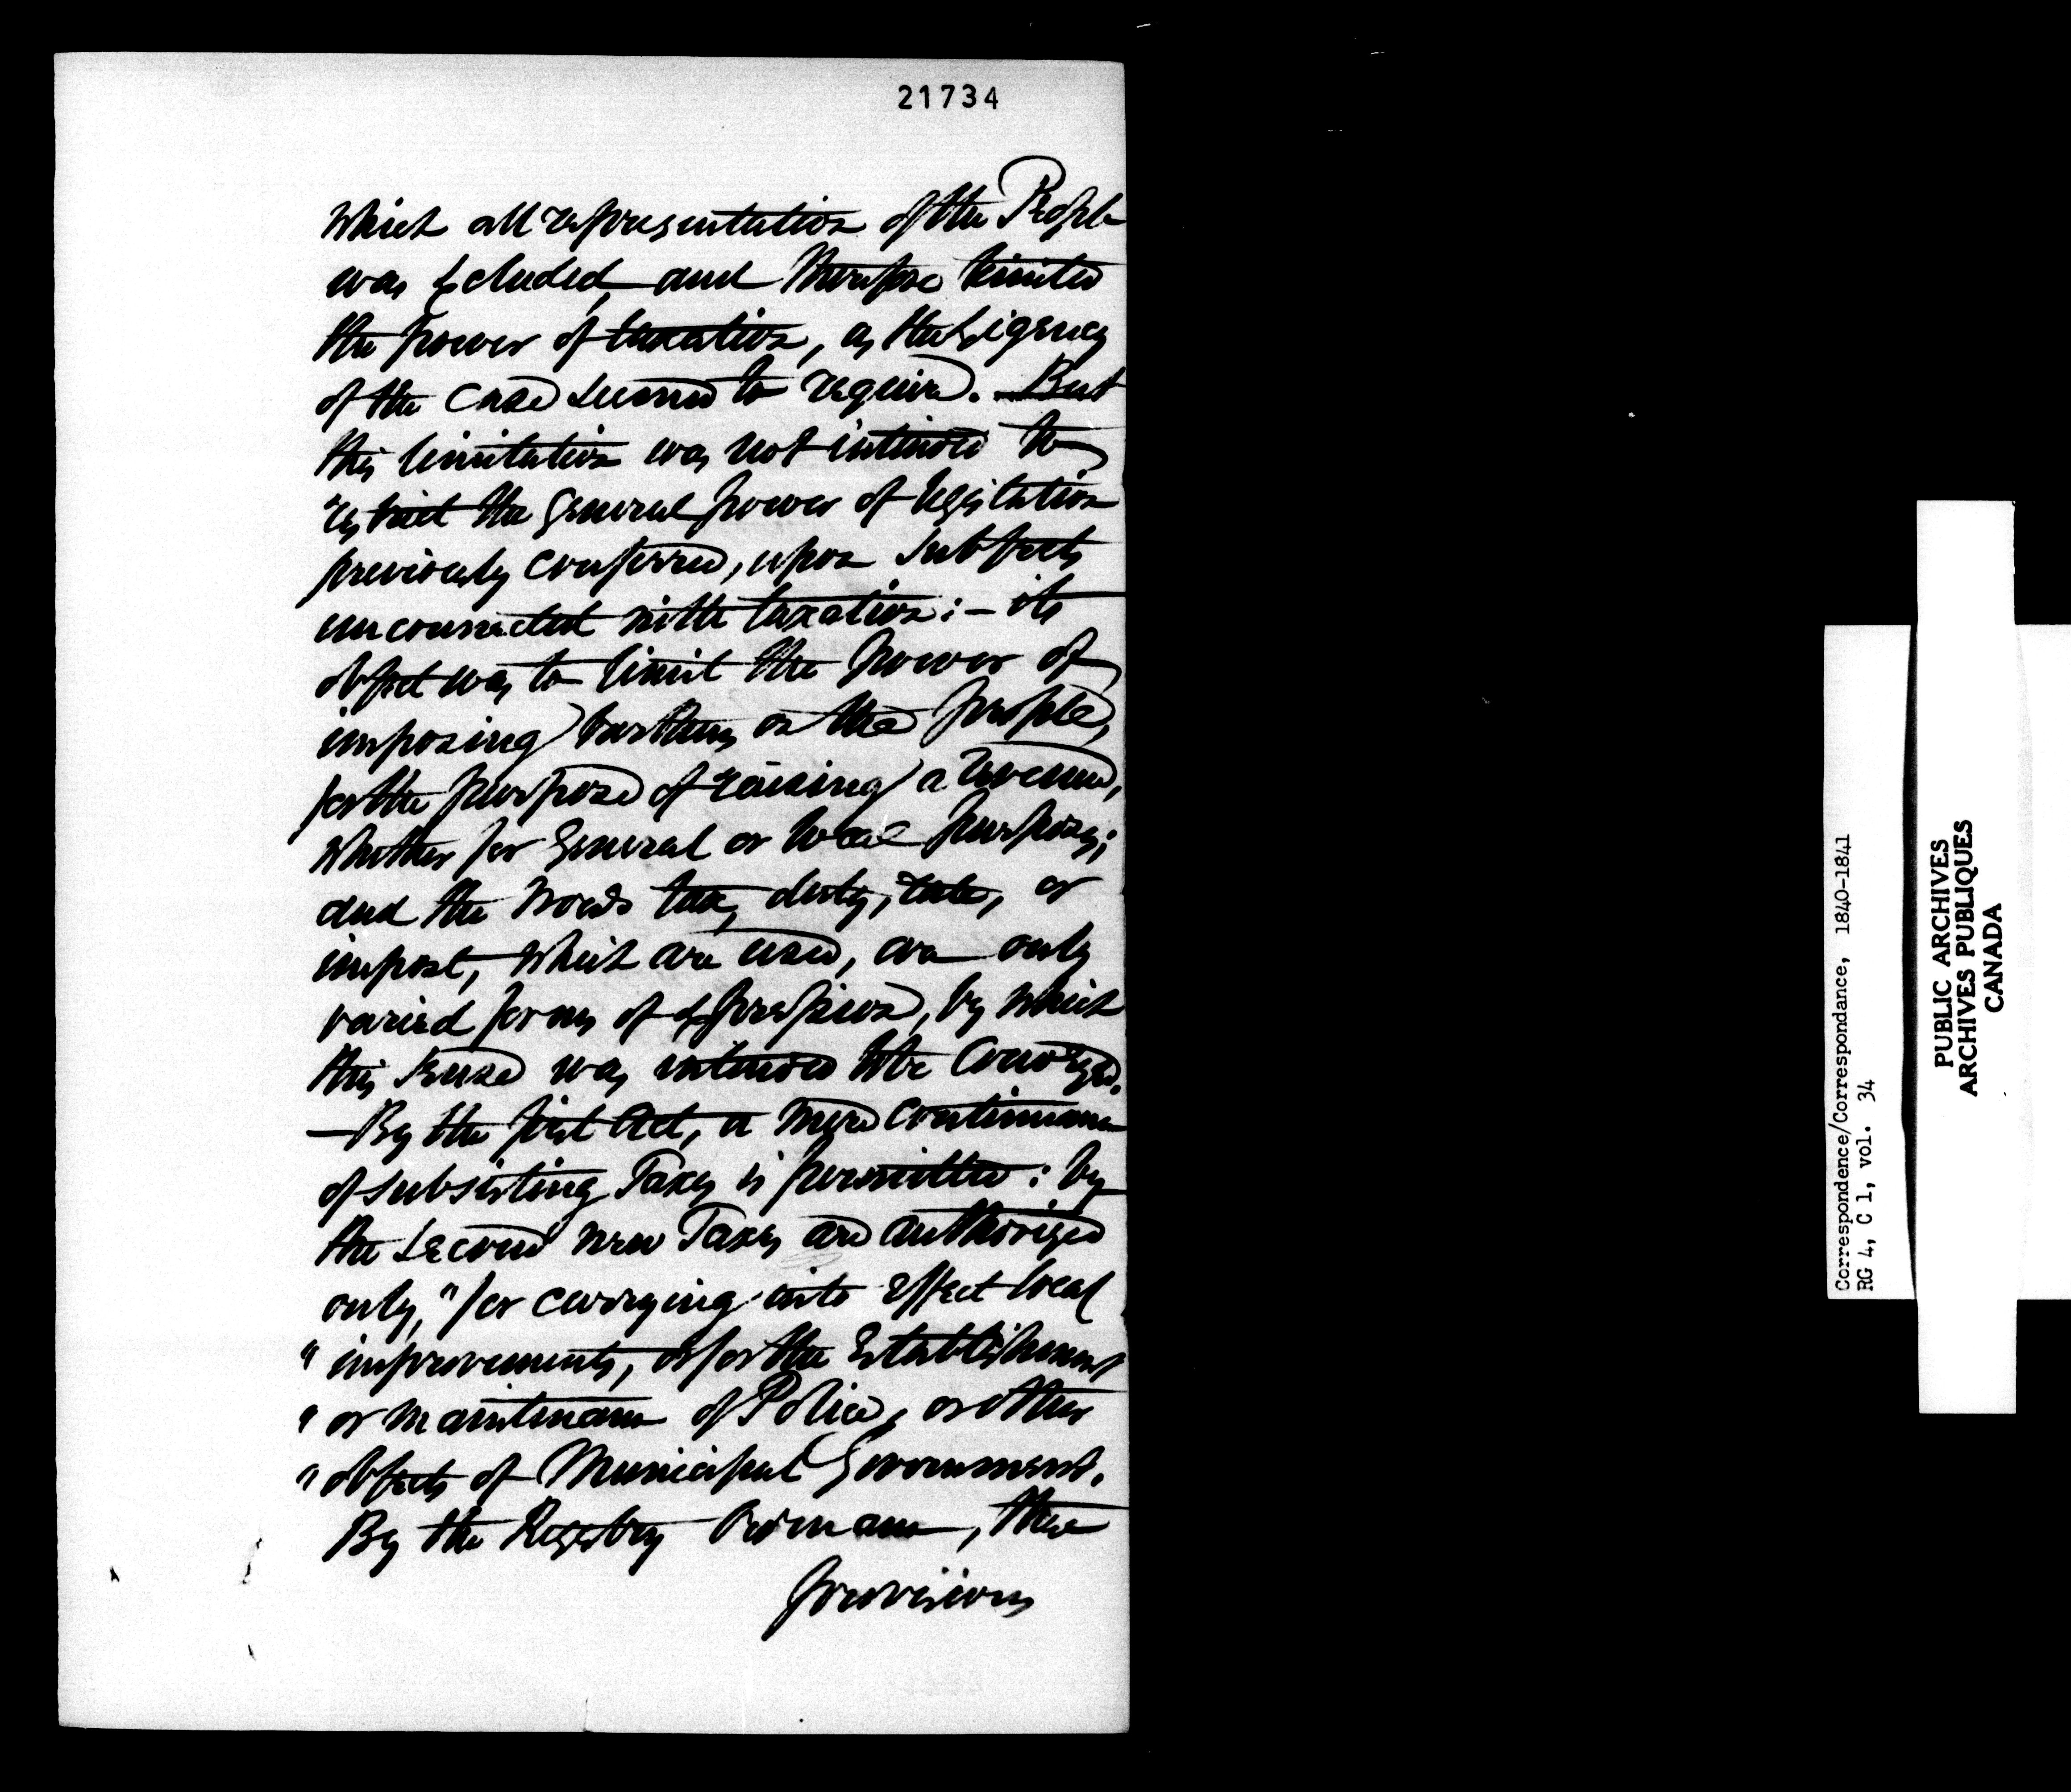 21734
which all representation of the People
was excluded, and therefore limited
the power of taxation, as the exigency
of the case seemed to require. — But
this limitation was not intended to
restrict the general power of legislation
previously conferred, upon subjects
unconnected with taxation: — its
object was to limit the power of
imposing burthens on the people,
for the purpose of raising a revenue,
whether for general or local purposes;
and the words tax, duty, rate, or
impost, which are used, are only
varied forms of expression, by which
this sense was intended to be conveyed.
— By the first Act, a mere continuance
of subsisting Taxes is permitted: by
the second new Taxes are authorized
only, "for carrying into effect local
" improvements, or for the establishment
" or maintenance of Police, or other
" objects of Municipal Government.
By the Registry Ordinance, these
provisions
Correspondence/Correspondance, 1840-1841
RG 4, C 1, vol. 34
PUBLIC ARCHIVES
ARCHIVES PUBLIQUES
CANADA